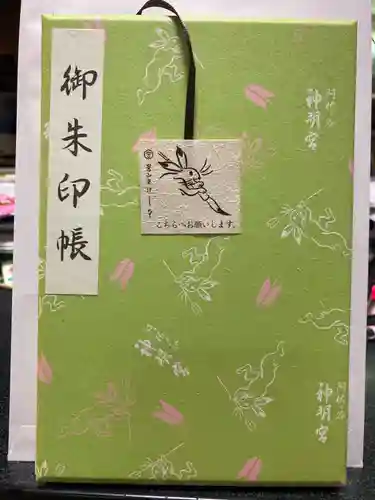 御朱印帳
こちらへお願いします。
阿佐ヶ谷
神明宮
阿佐ヶ谷
神明宮